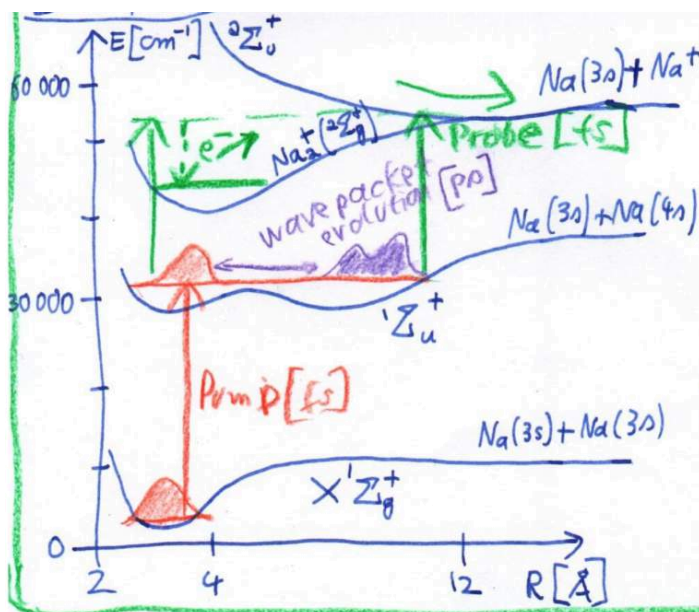 E[cm⁻¹]
²Σᵤ⁺
60 000
Na(3s)+Na⁺
e⁻
Na₂⁺(²Σg⁺)
Probe[fs]
wave packet
evolution [ps]
Na(3s)+Na(4s)
30 000
¹Σᵤ⁺
Pump[fs]
Na(3s)+Na(3s)
X¹Σg⁺
0
2
4
12
R[Å]